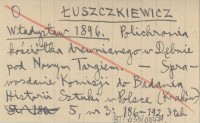 O ŁUSZCZKIEWICZ
Władysław 1896. Polichromia
kościółka drewnianego w Dębnie
pod Nowym Targiem. — Spra-
wozdanie Komisji do Badania
Historii Sztuki w Polsce (Kraków)
5, nr 3: 186-192, 3 tabl.